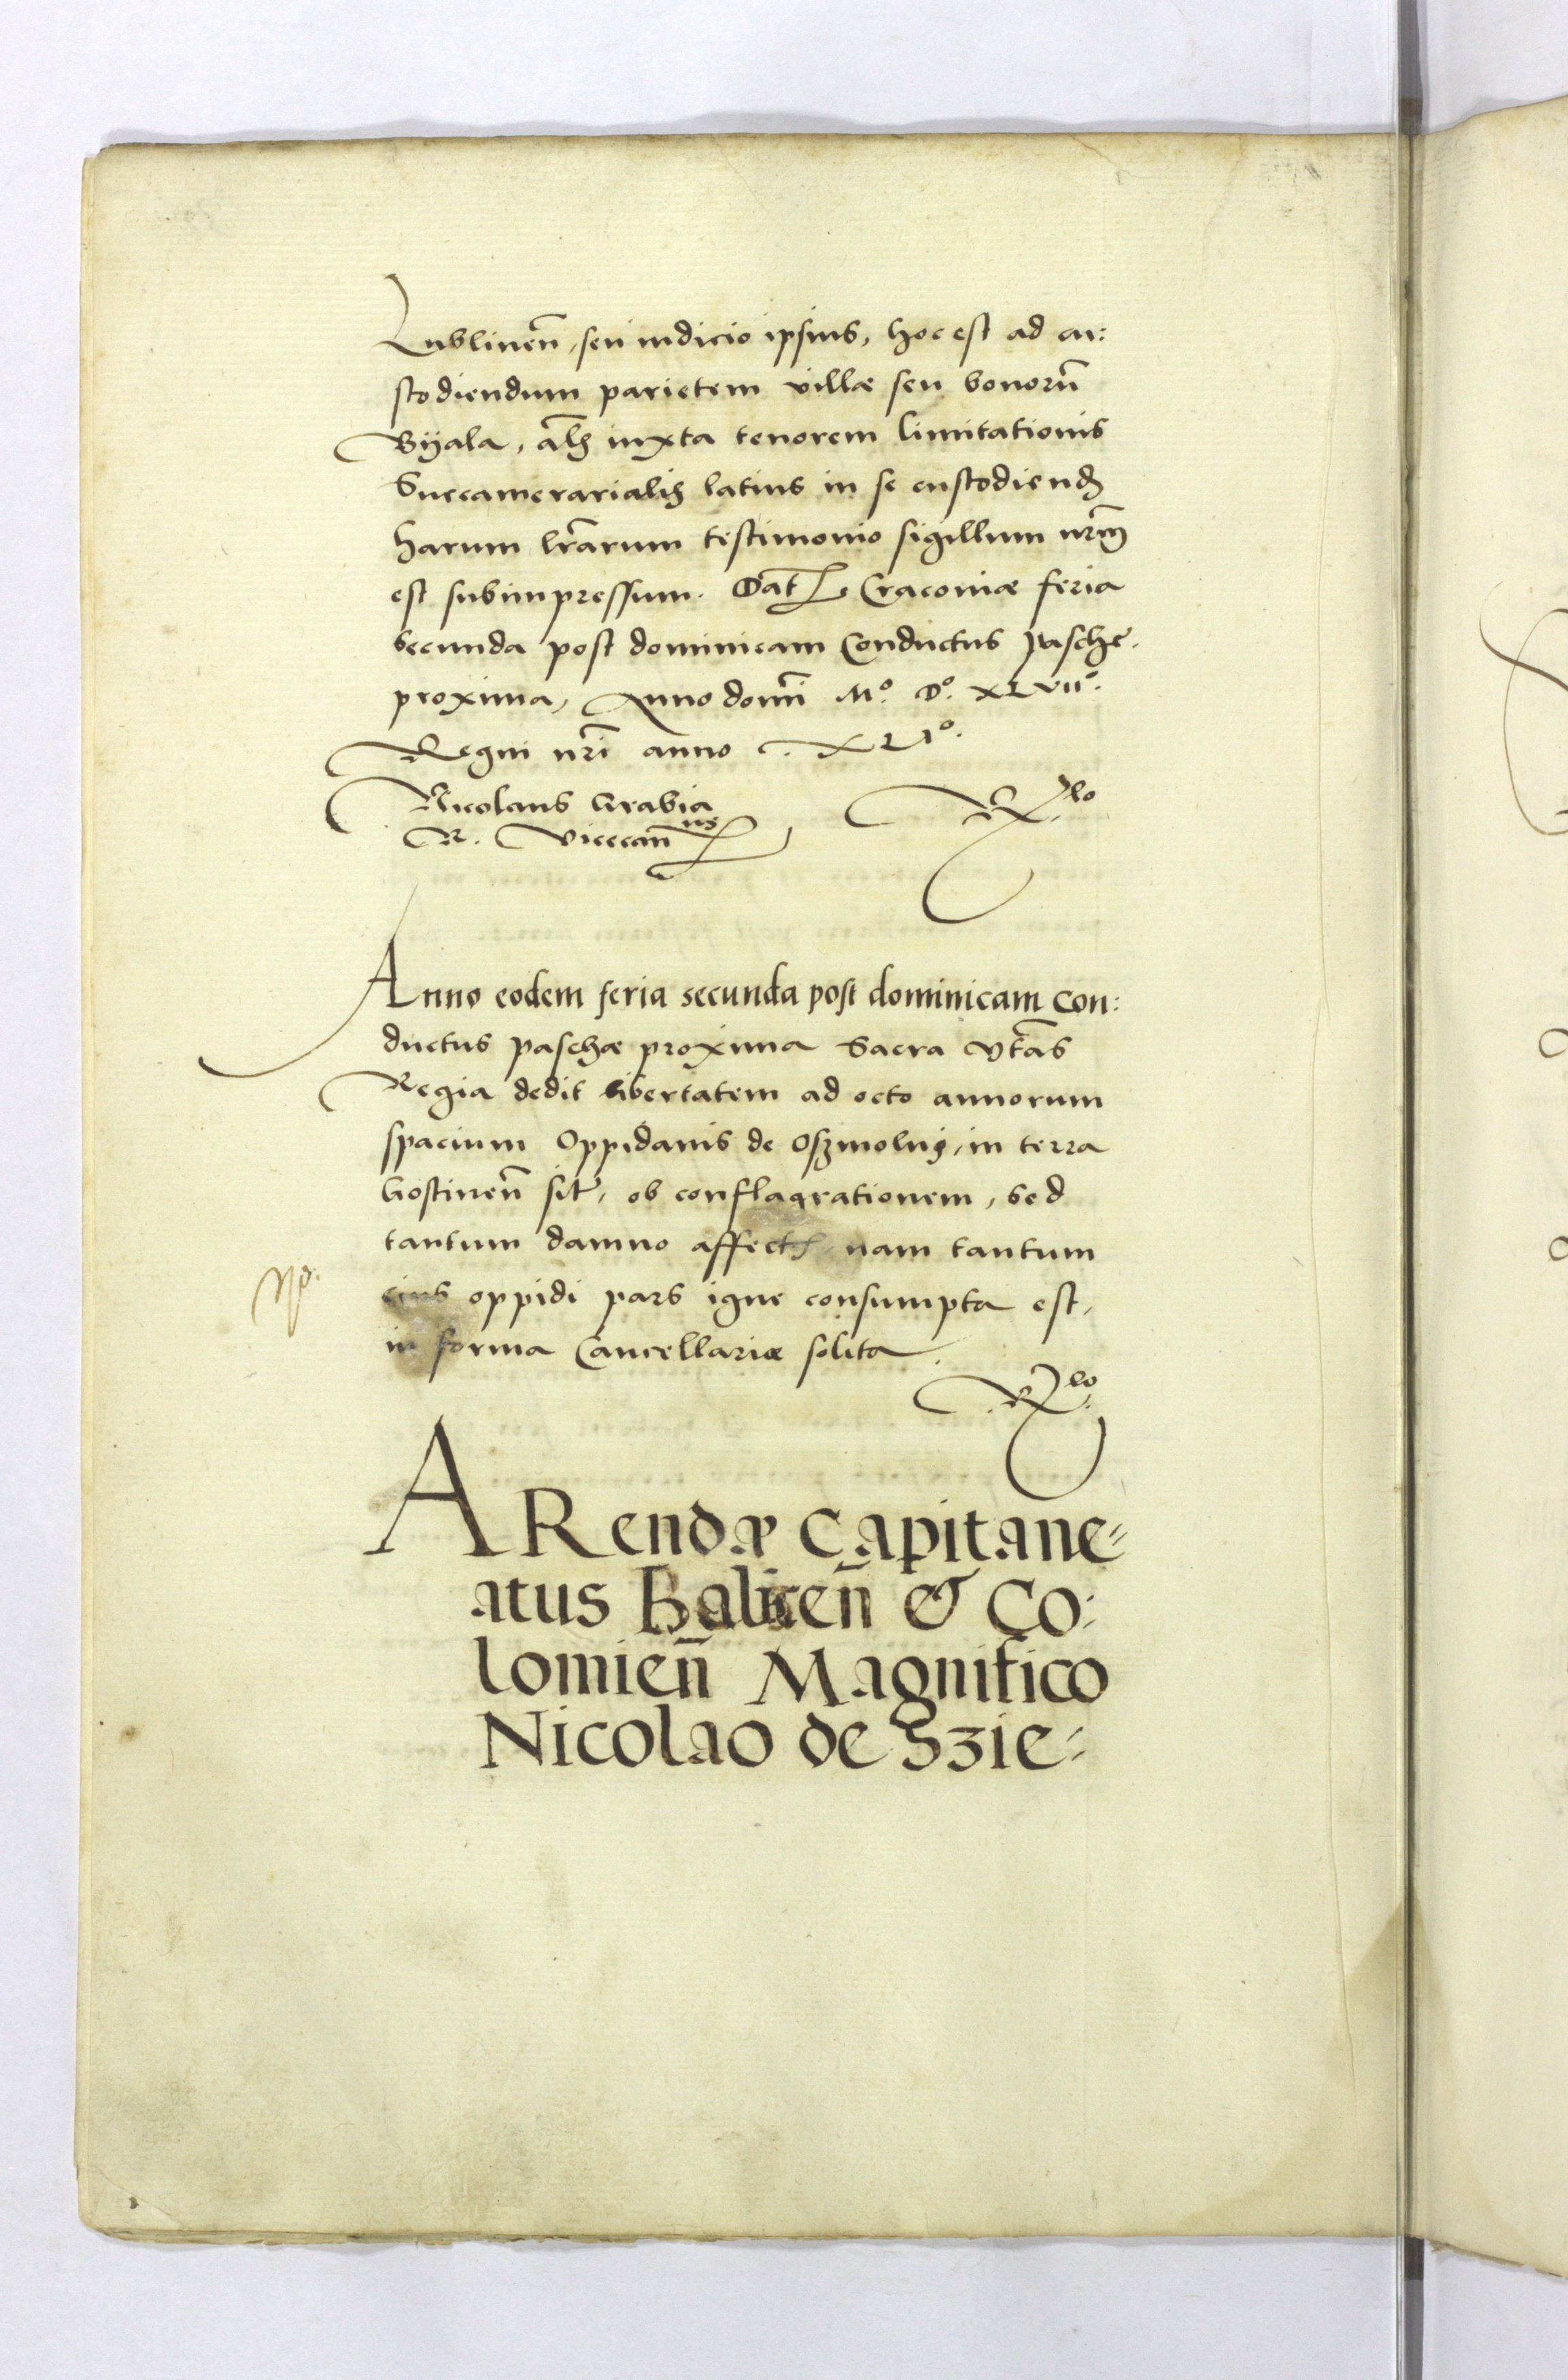 Lublinen̄, seu iudicio ipsius, hoc est ad cu:
stodiendum parietem villæ seu bonorū
Byala, al̄s iuxta tenorem limitationis
Succamerarialis latius in se custodiend
harum lr̄arum testimonio sigillum nr̄m
est subimpressum. Dat Cracoviæ feria
secunda post dominicam Conductus Paschę
proxima, Anno domī M.º D.º XLVII.º
Regni nr̄i anno XLIº.
Nicolaus Grabia
R. Vicecan̄ us
Rlo
Anno eodem feria secunda post dominicam Con:
ductus paschæ proxima Sacra Mtās
Regia dedit libertatem ad octo annorum
spacium Oppidanis de Oszmolny, in terra
Gostinen̄ sit, ob conflagrationem, sed
tantum damno affect nam tantum
eius oppidi pars igne consumpta est,
in forma Cancellariæ solita.
Rlo
ARendæ Capitane=
atus Halicen̄ & Co:
lomien̄ Magnifico
Nicolao de Szie=